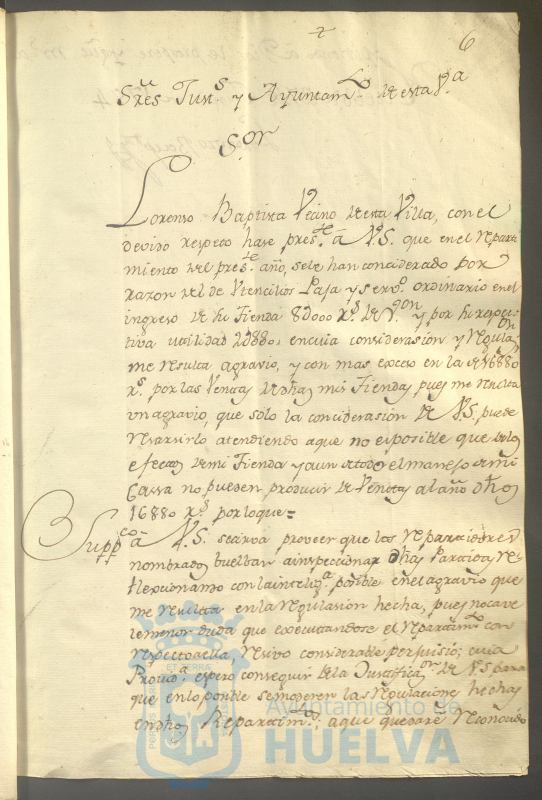 6
Sres Justs y Ayuntamto de esta Va
Sor
Lorenso Baptista Vecino de esta Villa, con el
devido respeto hase preste â VS. que en el repart
miento del preste año, sele han conciderado por
razon del de Utencilios Paja y servo ordinario en el
ingreso de su Tienda 8d000 rs de Von y por su respec
tiva utilidad 2d880, en cuia consideración y regulaon
me resulta agravio, y con mas exceso en la de 16880
rs por las Ventas de dhas mis Tiendas pues me resulta
un agravio, que solo la concideracion de VS. puede
atendiendo aque no es posible que delos
efectos de mi Tienda y aun de todo el manejo de mi
Cassa no pueden producir de Ventas al año dhos
16880 rs por loque=
Suppco â VS. se sirva proveer que los repartidores
nombrados buelban ainspeccionar dhas Partidas re
flexcionando con la inteliga posible en el agravio que
me resulta en la regulasion hecha, pues no cave
la menor duda que executandose el repartimto con
respecto a ella, resivo considerable perjuisio; cuia
Provida espero conseguir dela Justificaon de VS para
que en lo posible se moderen las regulaciones hechas
en dho Repartimto, a que quedaré reconosido
Ayuntamiento de
HUELVA